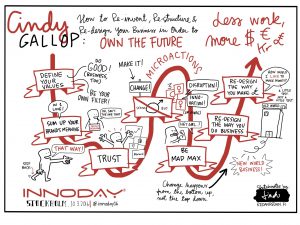 Cindy
GALLOP
How to Re-invent, Re-structure &
Re-design your Business in Order to
OWN THE FUTURE
Less work,
more $ € £
Kr
DEFINE
YOUR
VALUES
DO
GOOD!
(BUSINESS,
TOO)
BE YOUR
OWN FILTER!
SUM UP YOUR
BRANDS MEANING
THAT WAY!
TRUST
MAKE IT!
CHANGE!
MICROACTIONS
DISRUPTION!
INNOVATION!
BE
MAD MAX
RE-DESIGN
THE WAY
YOU MAKE £
RE-DESIGN
THE WAY YOU
DO BUSINESS
HOW WOULD
I LIKE TO
MAKE MONEY?
NEW WORLD
BUSINESS!
Change happens
from the bottom up,
not the top down
INNODAY
STOCKHOLM, 10.3.2016 @innoday16